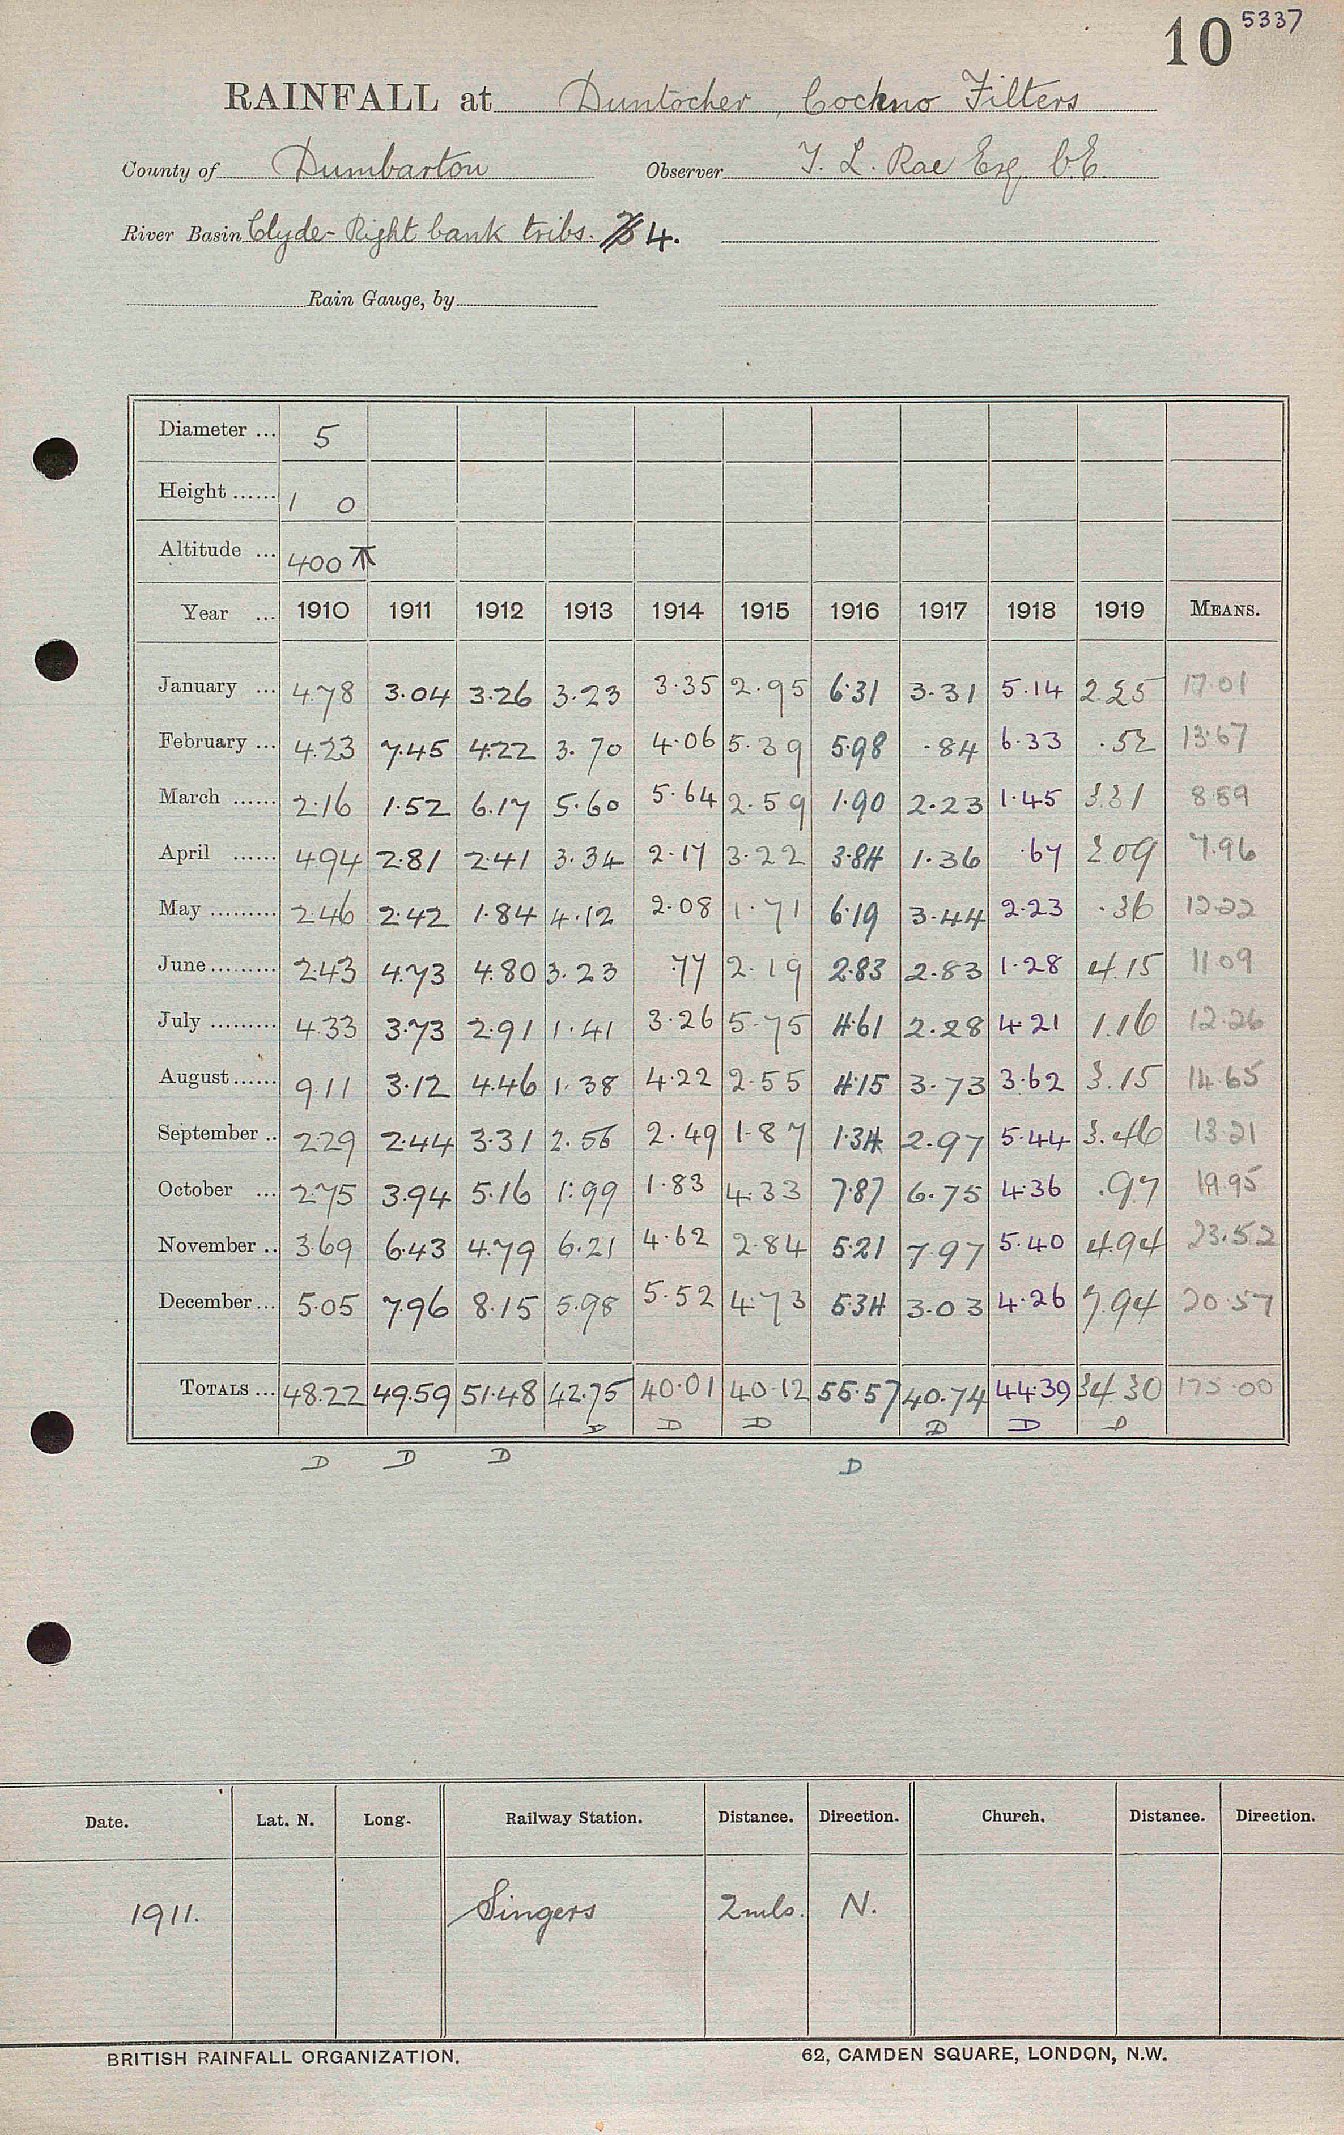 10 5337
RAINFALL at Duntocher, Cochno Filters
County of Dumbarton Observer T. L. Rae Esq. C.E.
River Basin Clyde - Right bank tribs. 4.
Rain Gauge, by
Diameter ... 5
Height ...... 1 0
Altitude ... 400 T
Year ... 1910 1911 1912 1913 1914 1915 1916 1917 1918 1919 MEANS.
January ... 4.78 3.04 3.26 3.23 3.35 2.95 6.31 3.31 5.14 2.25 17.01
February ... 4.23 7.45 4.22 3.70 4.06 5.39 5.98 .84 6.33 .52 13.67
March ...... 2.16 1.52 6.17 5.60 5.64 2.59 1.90 2.23 1.45 3.31 8.89
April ...... 4.94 2.81 2.41 3.34 2.17 3.22 3.84 1.36 .67 2.09 7.96
May ......... 2.46 2.42 1.84 4.12 2.08 1.71 6.19 3.44 2.23 .36 12.22
June ......... 2.43 4.73 4.80 3.23 .77 2.19 2.83 2.83 1.28 4.15 11.09
July ......... 4.33 3.73 2.91 1.41 3.26 5.75 4.61 2.28 4.21 1.16 12.26
August ...... 9.11 3.12 4.46 1.38 4.22 2.55 4.15 3.73 3.62 3.15 14.65
September .. 2.29 2.44 3.31 2.56 2.49 1.87 1.34 2.97 5.44 3.46 13.21
October ... 2.75 3.94 5.16 1.99 1.83 4.33 7.87 6.75 4.36 .97 19.95
November .. 3.69 6.43 4.79 6.21 4.62 2.84 5.21 7.97 5.40 4.94 23.52
December ... 5.05 7.96 8.15 5.98 5.52 4.73 5.34 3.03 4.26 7.94 20.57
TOTALS ... 48.22 49.59 51.48 42.75 40.01 40.12 55.57 40.74 44.39 34.30 175.00
D D D D D D
D D D D
Date. Lat. N. Long. Railway Station. Distance. Direction. Church. Distance. Direction.
1911. Singers 2 mls. N.
BRITISH RAINFALL ORGANIZATION. 62, CAMDEN SQUARE, LONDON, N.W.